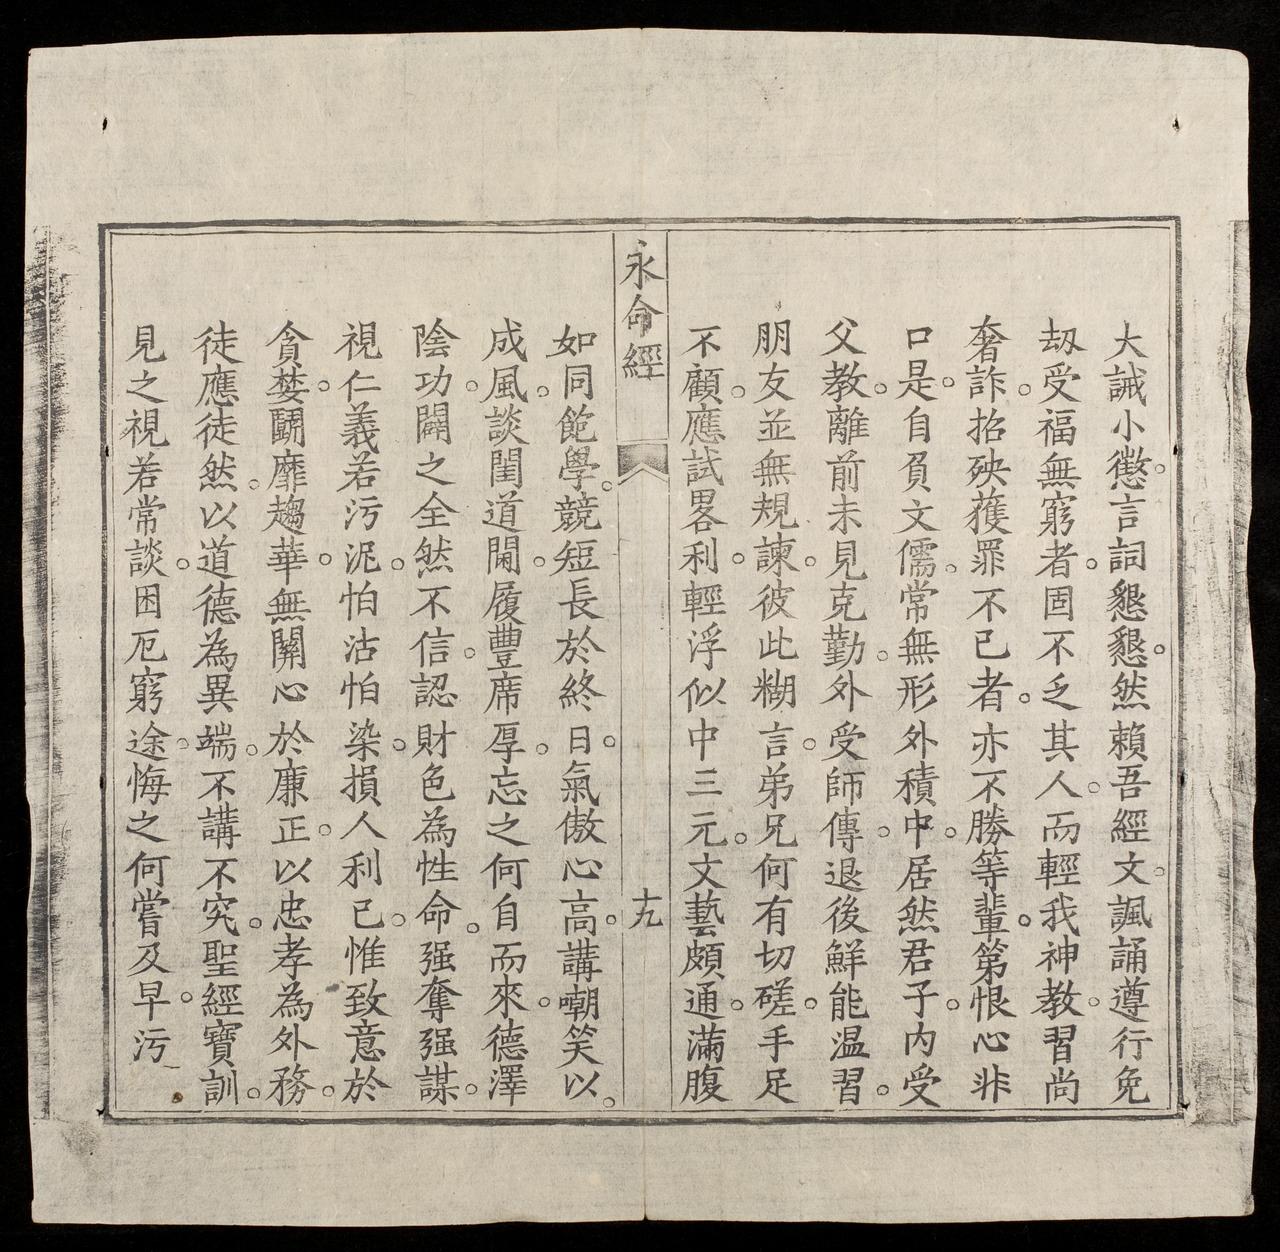 大誡小懲言詞懇懇然賴吾經文諷誦遵行免
刼受福無窮者固不乏其人而輕我神教習尚
奢詐招殃獲罪不已者亦不勝等輩第恨心非
口是自負文儒常無形外積中居然君子內受
父教離前未見克勤外受師傳退後鮮能温習
朋友並無規諫彼此糊言弟兄何有切磋手足
不顧應試畧利輕浮似中三元文藝頗通滿腹
永命經
十九
如同飽學競短長於終日氣傲心高講嘲笑以
成風談閨道閫履豐席厚忘之何自而來德澤
陰功闢之全然不信認財色為性命强奪强謀
視仁義若污泥怕沾怕染損人利己惟致意於
貪婪鬭靡趨華無關心於廉正以忠孝為外務
徒應徒然以道德為異端不講不究聖經寶訓
見之視若常談困厄窮途悔之何嘗及早污